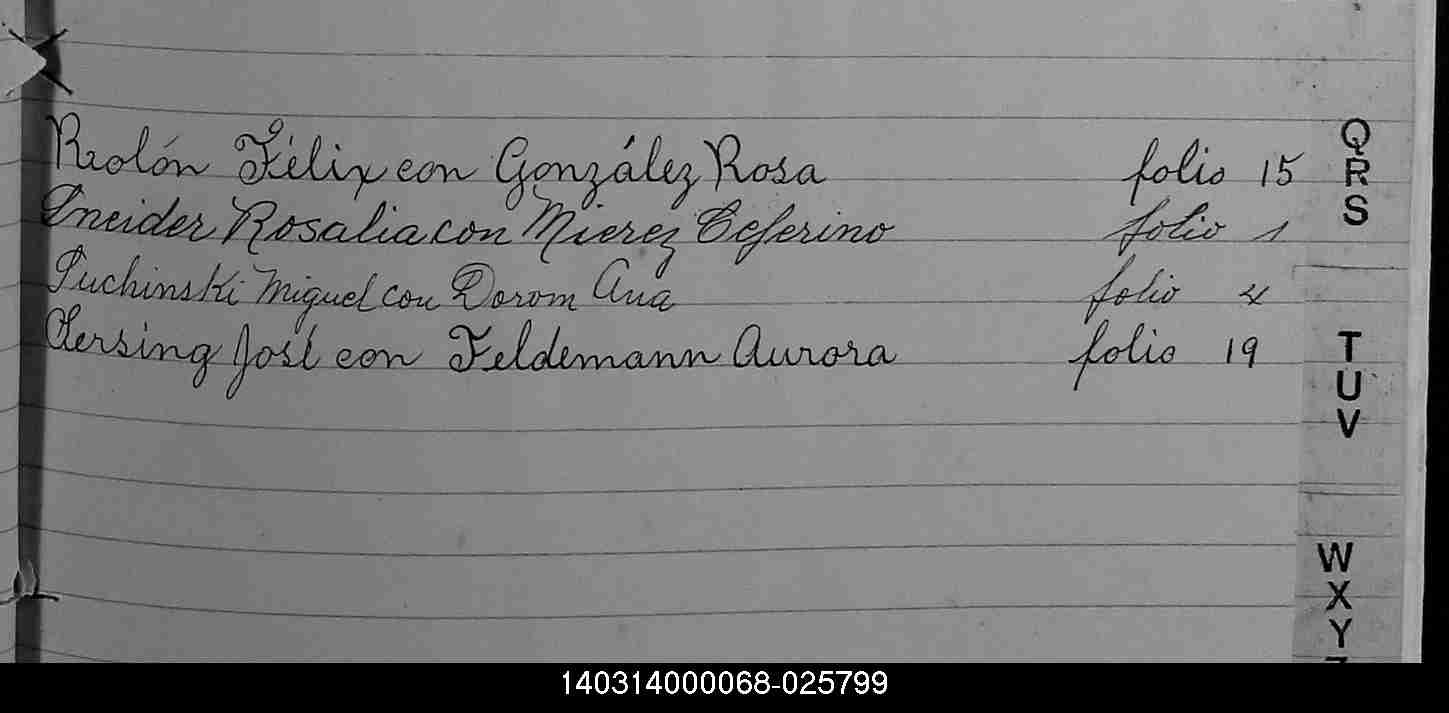 Rolón Félix con González Rosa folio 15
Sneider Rosalia con Mierez Ceferino folio 1
Suchinski Miguel con Dorom Ana folio 4
José con Feldemann Aurora folio 19
Q
R
S
T
U
V
W
X
Y
140314000068-025799